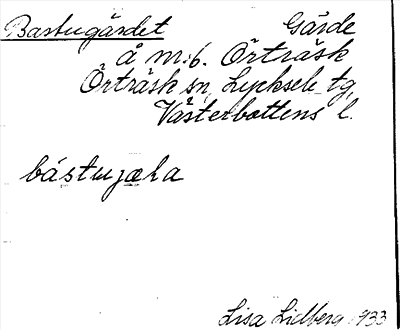 Bastugärdet Gärde
å n:r 6. Örträsk
Örträsk sn, Lycksele tg,
Västerbottens l.
bástujæla
Lisa Lidberg 1933